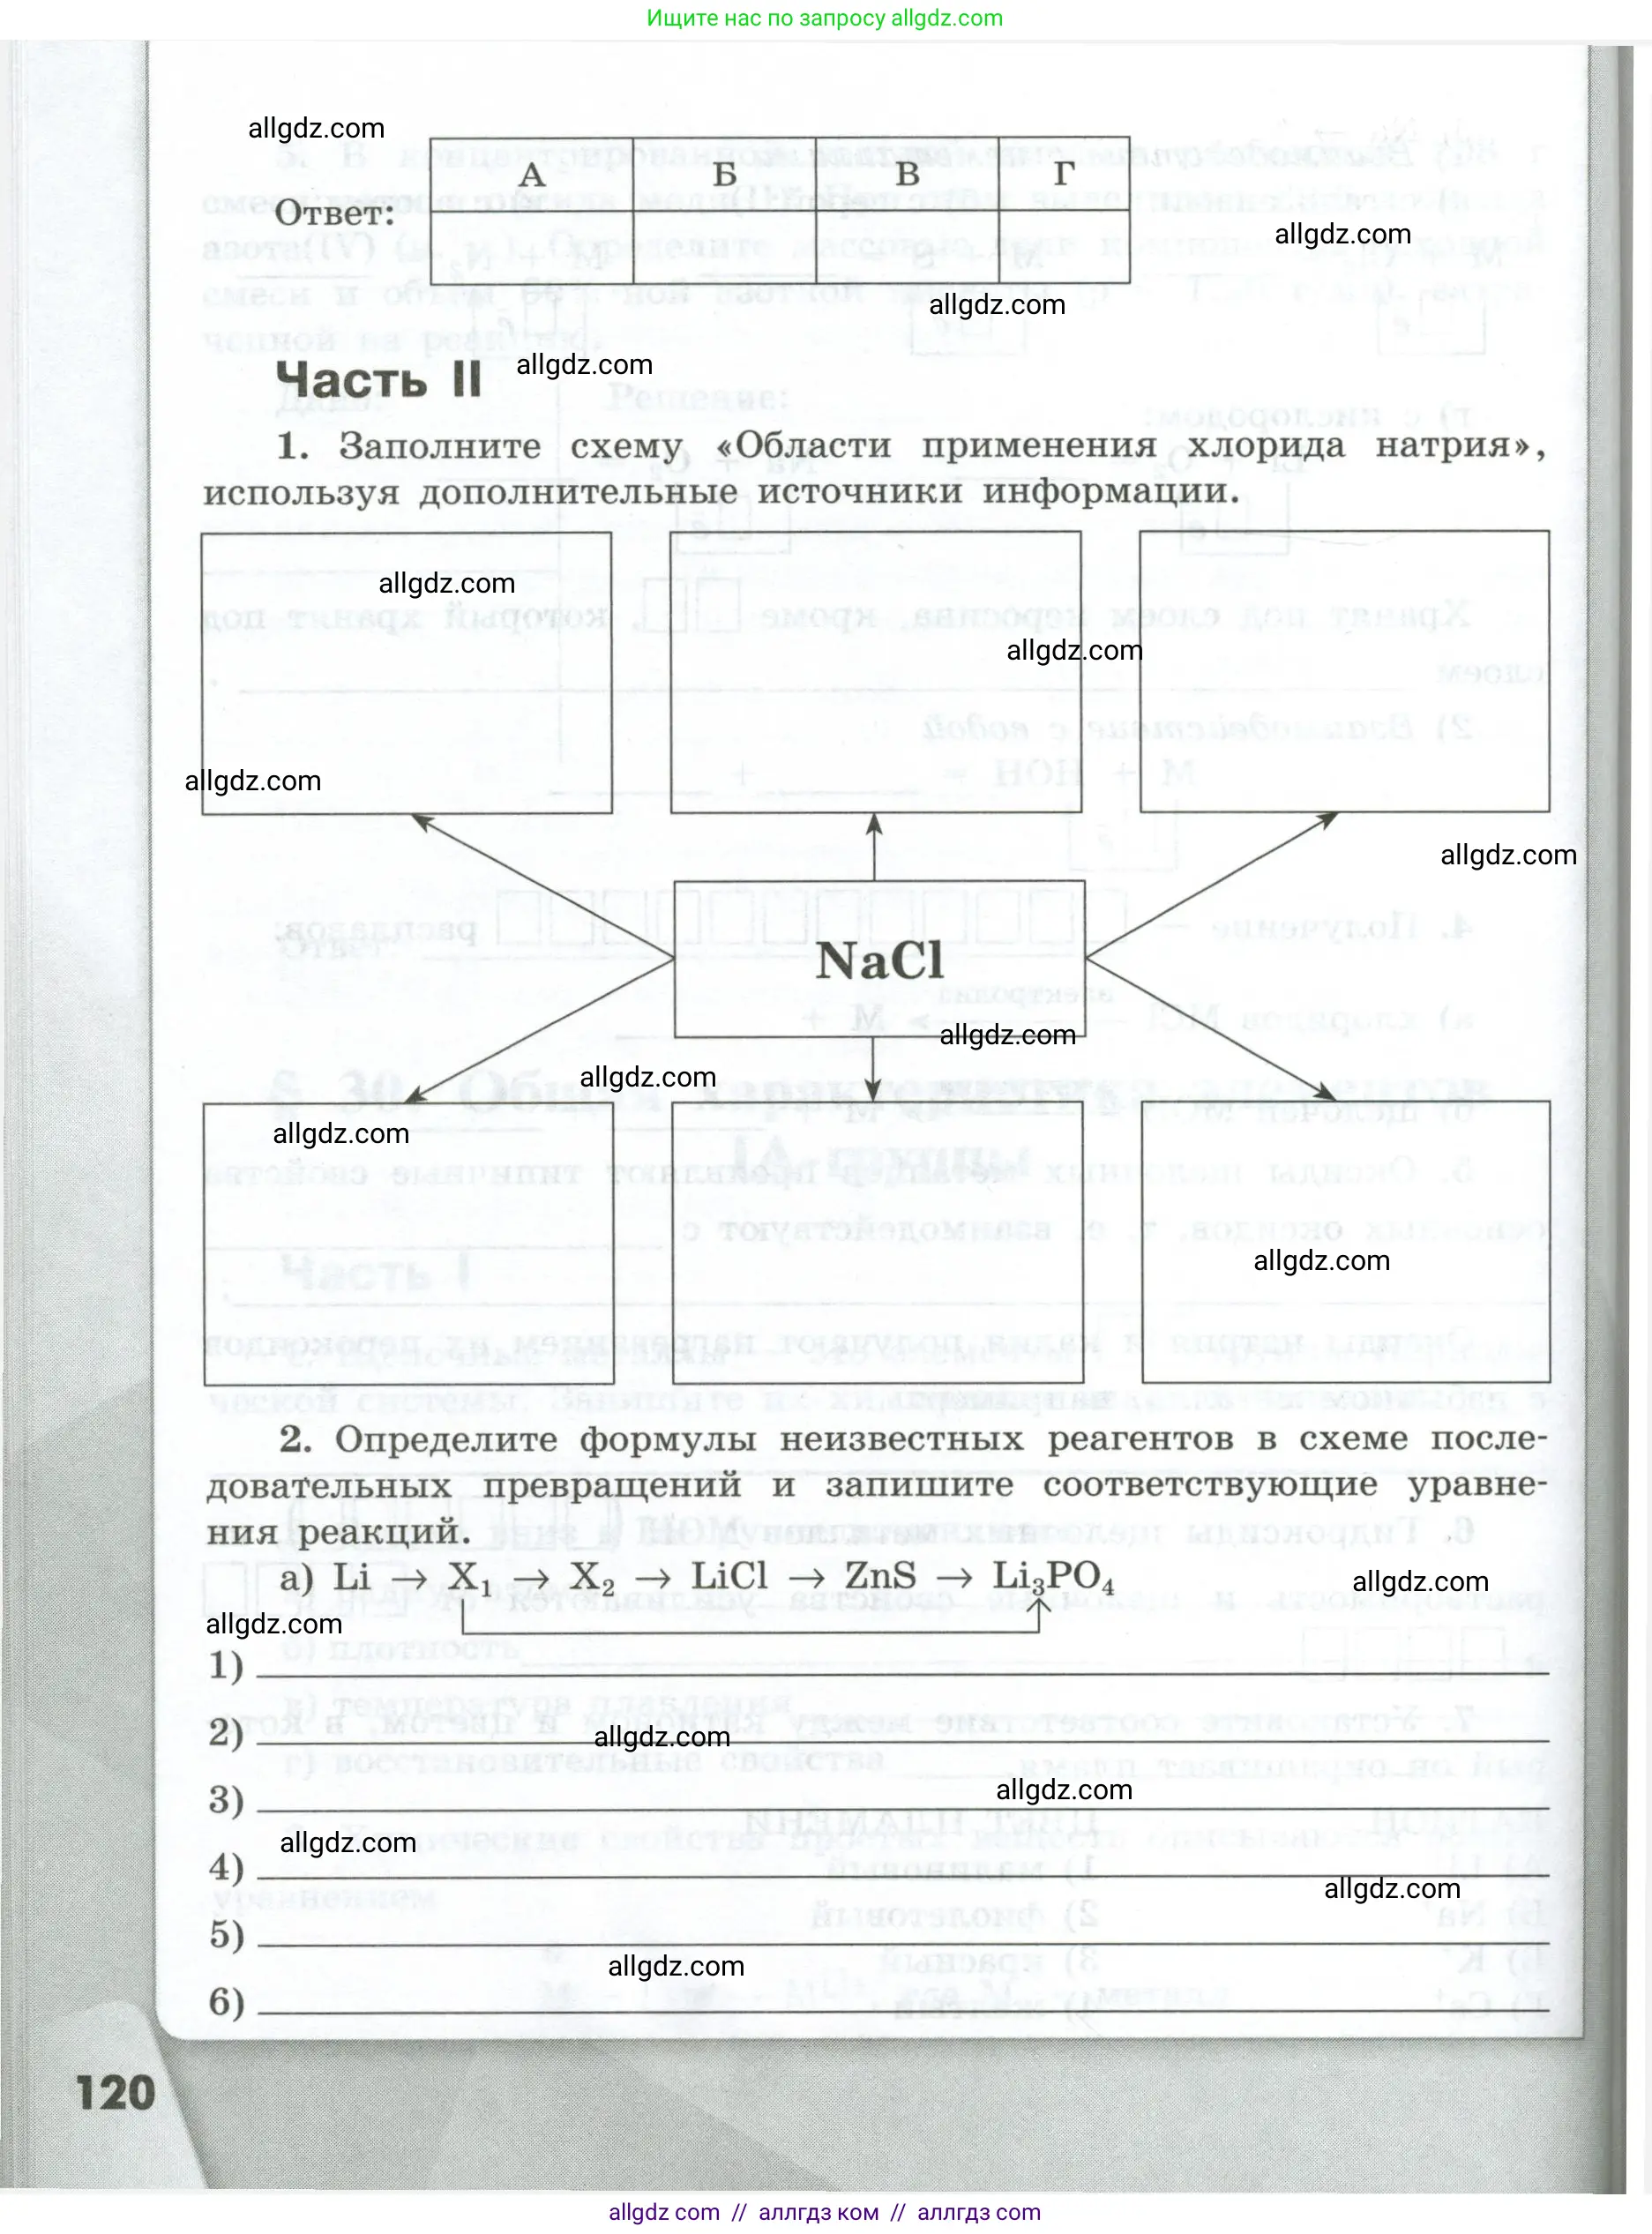 Ищите нас по запросу allgdz.com
allgdz.com
А Б В Г
Ответ:
allgdz.com
allgdz.com
Часть II
allgdz.com
1. Заполните схему «Области применения хлорида натрия»,
используя дополнительные источники информации.
allgdz.com
allgdz.com
allgdz.com
allgdz.com
NaCl
allgdz.com
allgdz.com
allgdz.com
allgdz.com
2. Определите формулы неизвестных реагентов в схеме после-
довательных превращений и запишите соответствующие уравне-
ния реакций.
а) Li → X₁ → X₂ → LiCl → ZnS → Li₃PO₄
allgdz.com
allgdz.com
1)
2)
allgdz.com
3)
allgdz.com
allgdz.com
4)
allgdz.com
5)
allgdz.com
6)
120
allgdz.com // аллгдз ком // аллгдз com